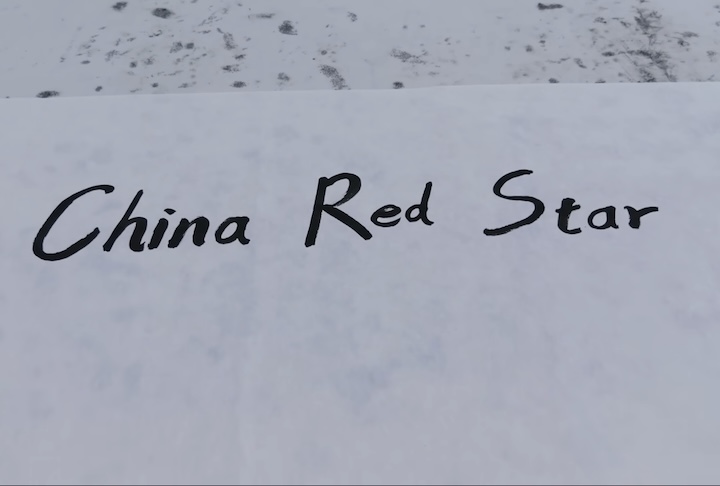 China Red Star